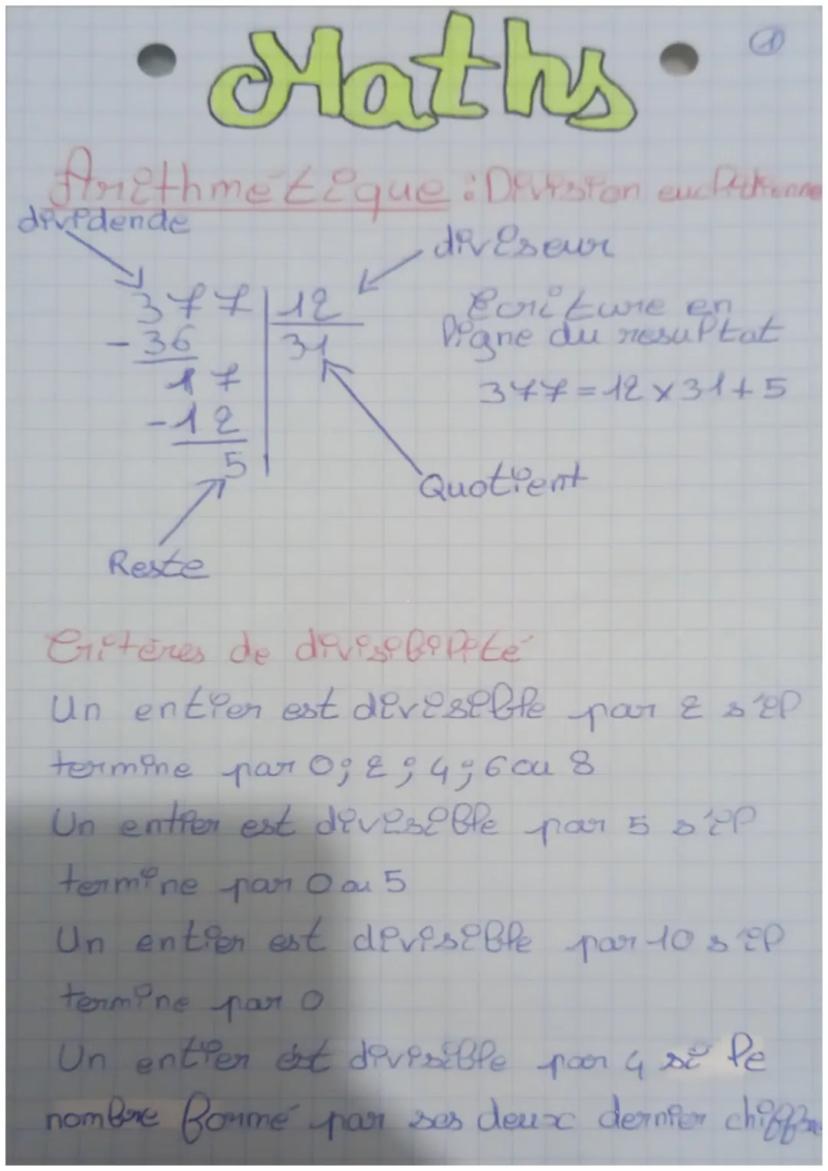 Maths
1
Arithmétique : Division euclidienne
dividende
diviseur
377 | 12
- 36
31
17
- 12
5
Ecriture en
ligne du resultat
377 = 12 x 31 + 5
Quotient
Reste
Critères de divisibilité
Un entier est divisible par 2 s'il
termine par 0 ; 2 ; 4 ; 6 ou 8
Un entier est divisible par 5 s'il
termine par 0 ou 5
Un entier est divisible par 10 s'il
termine par 0
Un entier est divisible par 4 si le
nombre formé par ses deux dernier chiffre